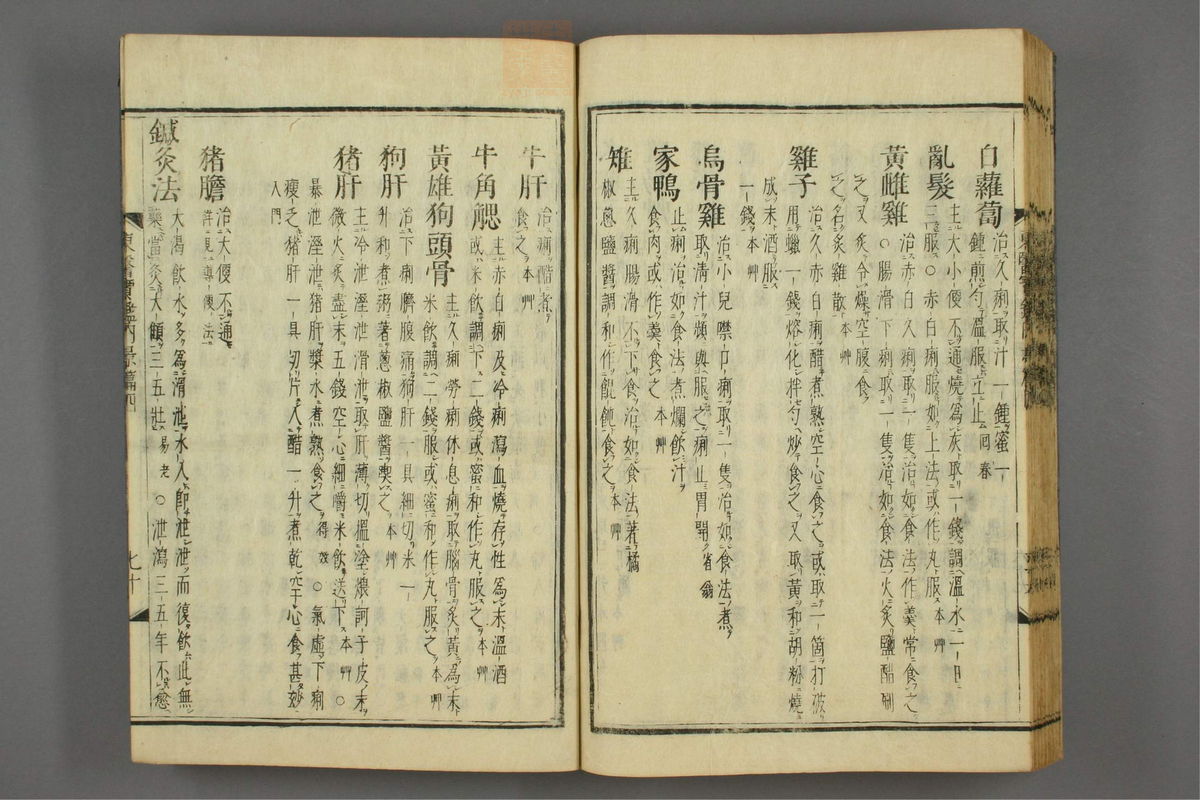 白蘿蔔 治久痢取汁一鍾蜜一
鍾煎勻溫服立止 回春
亂髮 主大小便不通燒爲灰取一錢調溫水一日
三服○赤白痢服如上法或作丸服 本艸
黃雌雞 治赤白久痢取一隻治如食法作羹常食之
○腸滑下痢取一隻治如食法火炙鹽醋刷
之又炙令燥空腹食
之名炙雞散 本艸
雞子 治久赤白痢醋煮熟空心食之或取一箇打破
用蠟一錢熔化拌勻炒食之又取黃和胡粉燒
成末酒服
一錢 本艸
烏骨雞 治小兒噤口痢取一隻治如食法煮
取淸汁頻與服之痢止胃開 省翁
家鴨 止痢治如食法煮爛飮汁
食肉或作羹食之 本艸
雉 主久痢腸滑不下食治如食法著橘
椒葱鹽醬調和作餛飩食之 本艸
牛肝 治痢醋煮
食之 本艸
牛角䚡 主赤白痢及冷痢瀉血燒存性爲末溫酒
或米飮調下二錢或蜜和作丸服之 本艸
黃雄狗頭骨 主久痢勞痢休息痢取腦骨炙黃爲末
米飮調二錢服或蜜和作丸服之 本艸
狗肝 治下痢臍腹痛狗肝一具細切米一
升和煮粥著葱椒鹽醬喫之 本艸
猪肝 主冷泄溼泄滑泄取肝薄切搵塗煨訶子皮末
微火炙盡末五錢空心細嚼米飮送下 本艸 ○
暴泄溼泄猪肝漿水煮熟食之 得效 ○氣虛下痢
瘦乏猪肝一具切片入醋一升煮乾空心食甚妙
入門
猪膽 治大便不通
詳見導便法
鍼灸法 大渴飮水多爲滑泄水入卽泄泄而復飮此無
藥當灸大顀三五壯 易老 ○泄瀉三五年不愈
七十